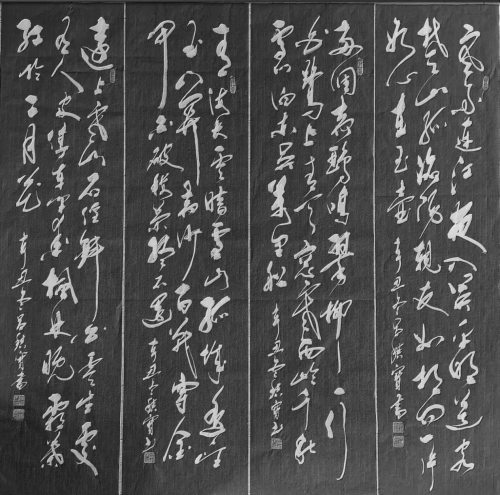 寒雨連江夜入吳平明送客
楚山孤洛陽親友如相問一片
冰心在玉壺 辛丑冬
兩個黃鸝鳴翠柳一行
白鷺上青天窗含西嶺千秋
雪門泊東吳萬里船 辛丑冬
青海長雲暗雪山孤城遙望
玉門關黃沙百戰穿金
甲不破樓蘭終不還 辛丑冬
遠上寒山石徑斜白雲生處
有人家停車坐愛楓林晚霜葉
紅於二月花 辛丑冬